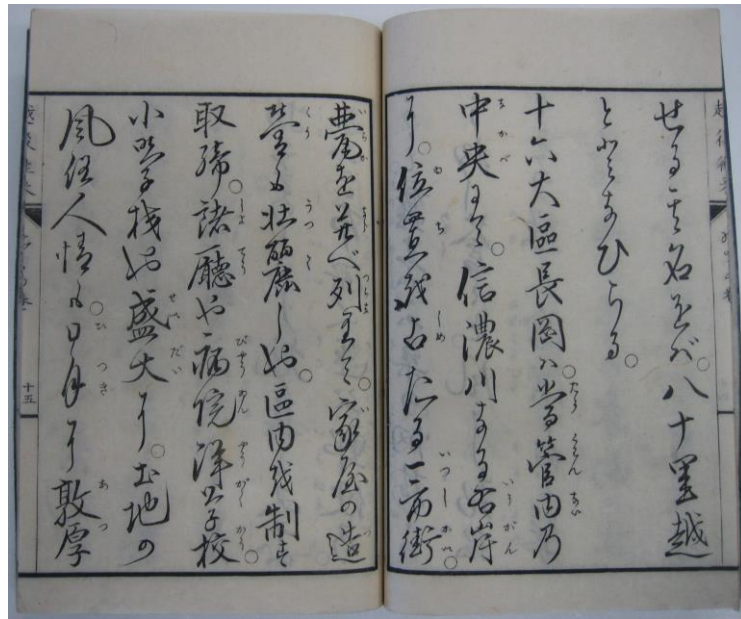 せる其名をバ。八十里越
とぞとなひける。
十六大區長岡ハ。當管内乃
中央にて。信濃川なる右岸
に。位置越占たる一市街。
甍を並べ列ねて。家屋の造
營も壮麗しや。區内越制す
取締。諸廳や病院洋学校。
小学校や盛大に。土地の
風俗人情も。日月に敦厚
十五